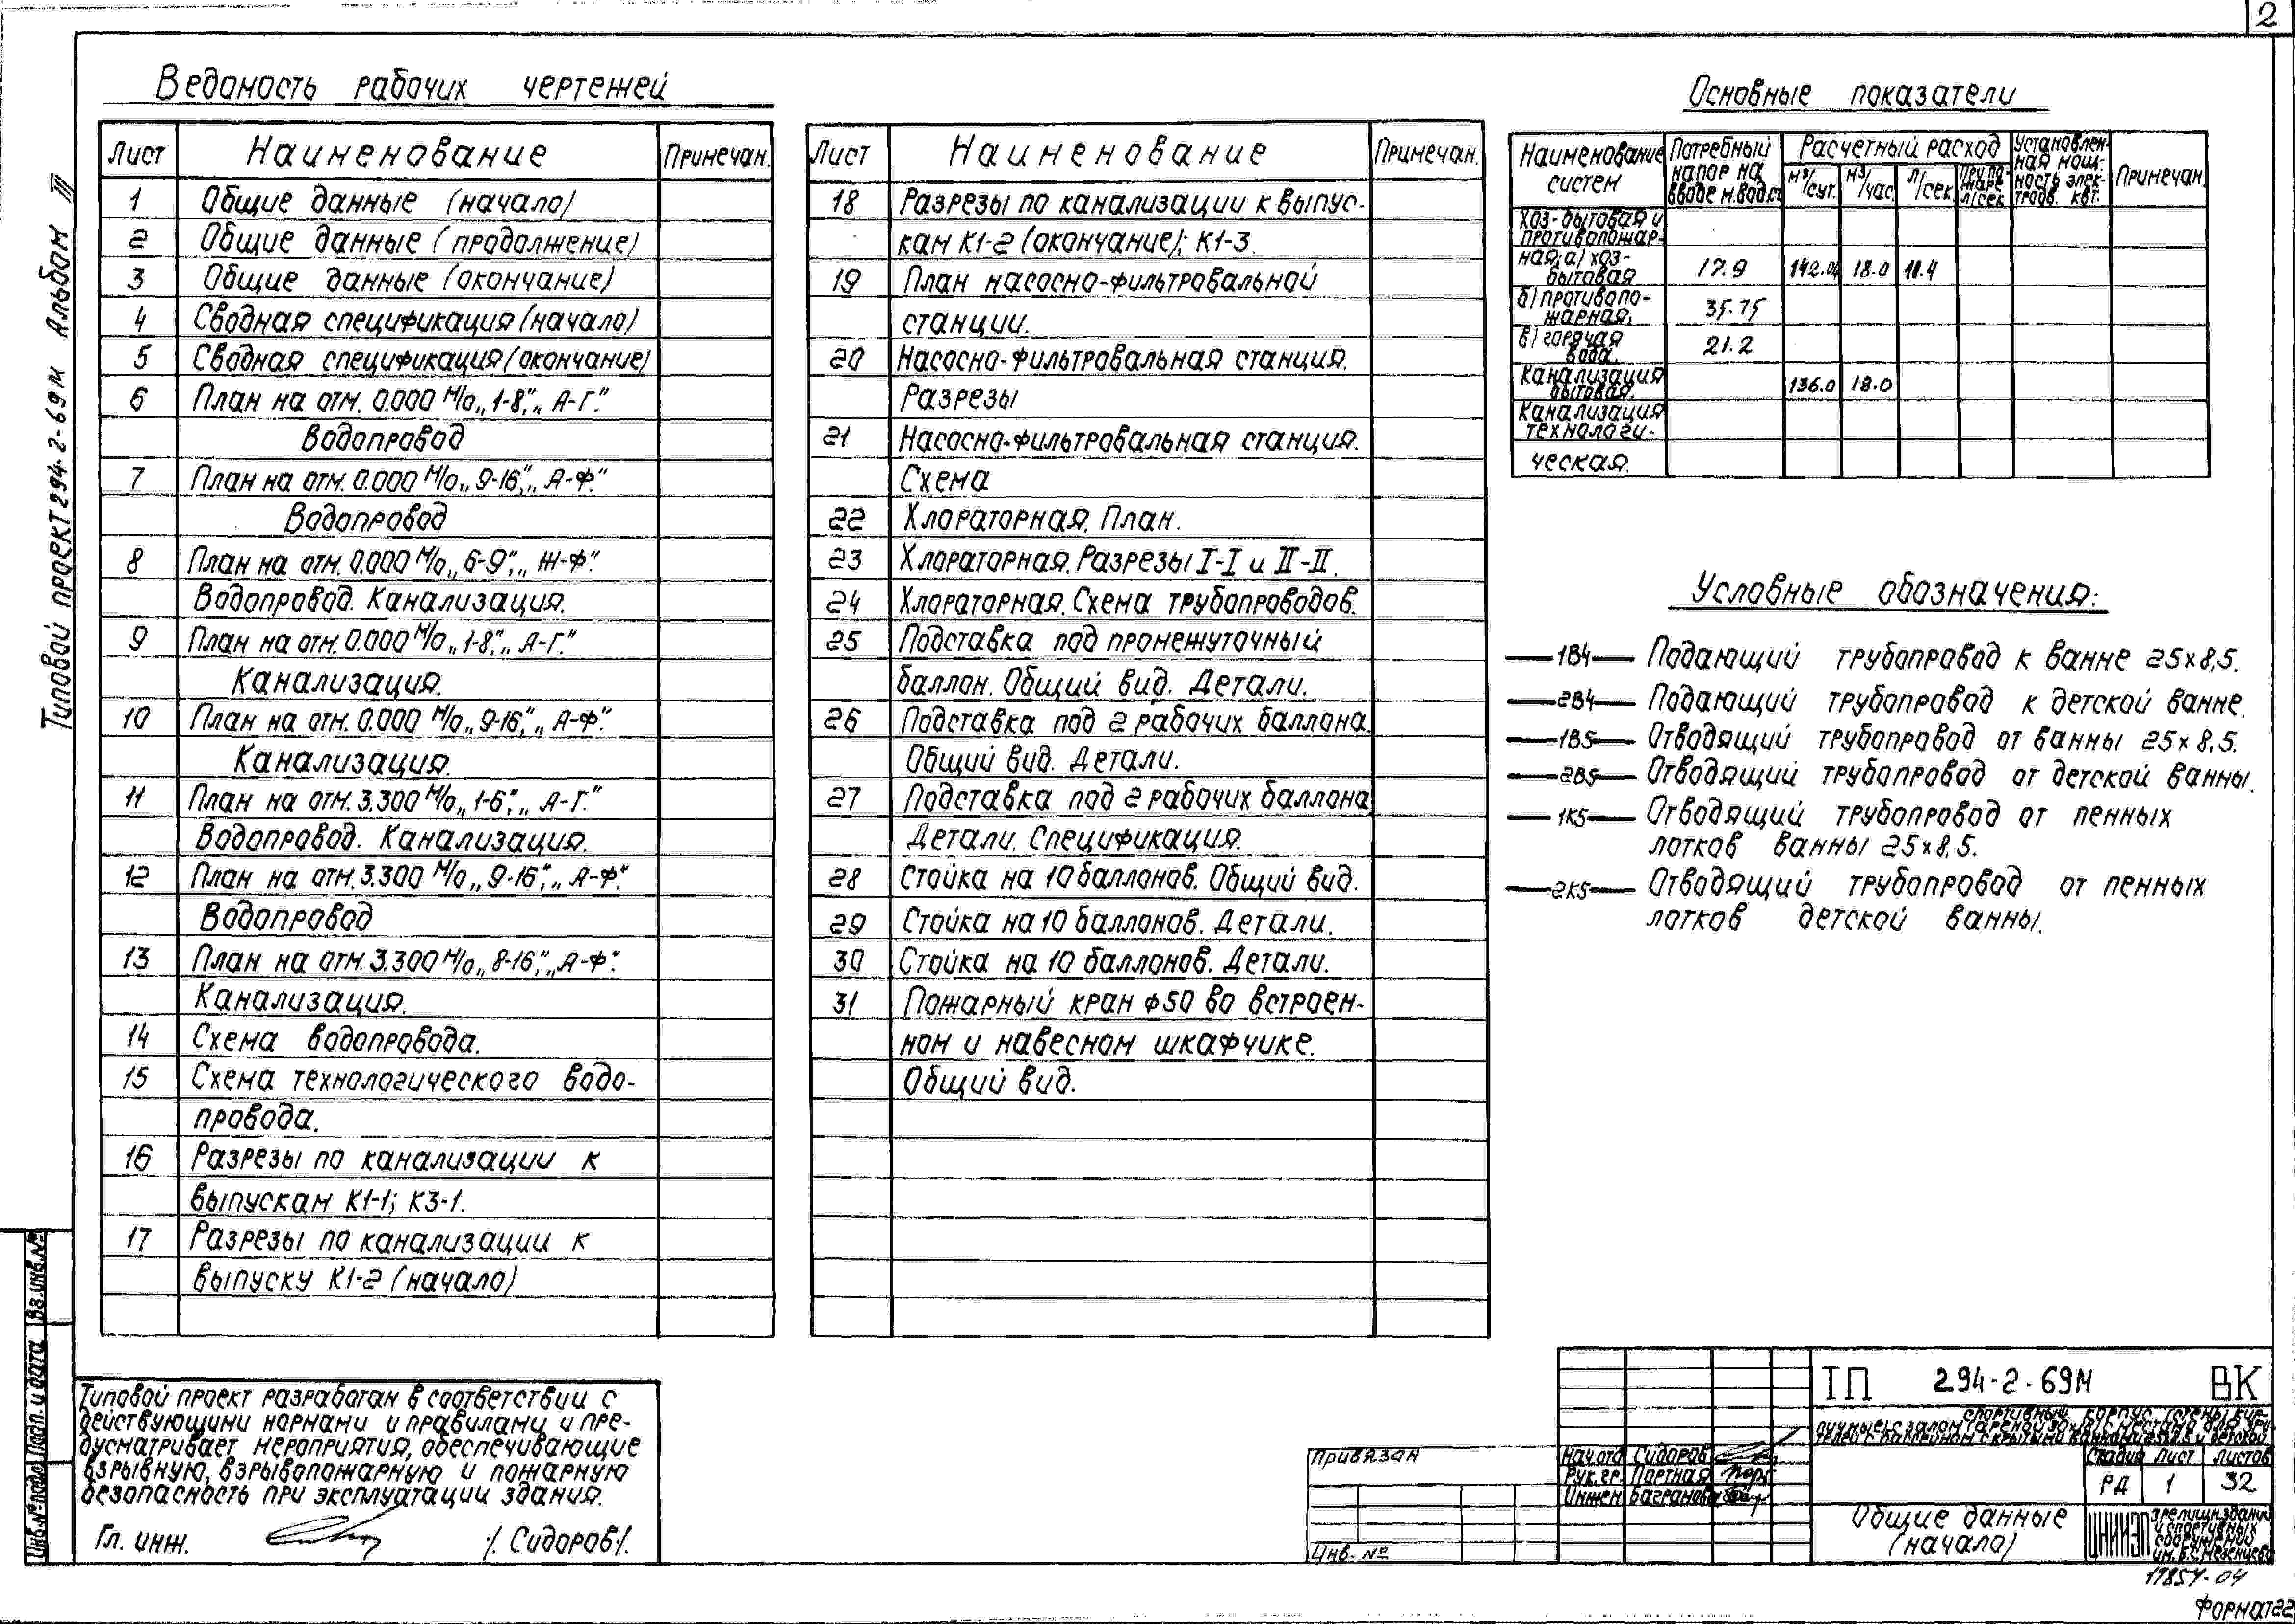 2
Типовой проект 294-2-69М Альбом III
Ведомость рабочих чертежей
Лист Наименование Примечан.
1 Общие данные (начало)
2 Общие данные (продолжение)
3 Общие данные (окончание)
4 Сводная спецификация (начало)
5 Сводная спецификация (окончание)
6 План на отм. 0.000 м/о „1-8", „А-Г".
Водопровод
7 План на отм. 0.000 м/о „9-16", „А-Ф".
Водопровод
8 План на отм. 0.000 м/о „6-9", „Ж-Ф".
Водопровод. Канализация.
9 План на отм. 0.000 м/о „1-8", „А-Г".
Канализация.
10 План на отм. 0.000 м/о „9-16", „А-Ф".
Канализация.
11 План на отм. 3.300 м/о „1-6", „А-Г."
Водопровод. Канализация.
12 План на отм. 3.300 м/о „9-16", „А-Ф".
Водопровод
13 План на отм. 3.300 м/о „8-16", „А-Ф".
Канализация.
14 Схема водопровода.
15 Схема технологического водо-
провода.
16 Разрезы по канализации к
выпускам К1-1; К3-1.
17 Разрезы по канализации к
выпуску К1-2 (начало)
Лист Наименование Примечан.
18 Разрезы по канализации к выпус-
кам К1-2 (окончание); К1-3.
19 План насосно-фильтровальной
станции.
20 Насосно-фильтровальная станция.
Разрезы
21 Насосно-фильтровальная станция.
Схема
22 Хлораторная. План.
23 Хлораторная. Разрезы I-I и II-II.
24 Хлораторная. Схема трубопроводов.
25 Подставка под промежуточный
баллон. Общий вид. Детали.
26 Подставка под 2 рабочих баллона.
Общий вид. Детали.
27 Подставка под 2 рабочих баллона
Детали. Спецификация.
28 Стойка на 10 баллонов. Общий вид.
29 Стойка на 10 баллонов. Детали.
30 Стойка на 10 баллонов. Детали.
31 Пожарный кран ф50 во встроен-
ном и навесном шкафчике.
Общий вид.
Основные показатели
Наименование систем
Потребный напор на вводе м.вод.ст.
Расчетный расход
м³/сут. м³/час. л/сек. при пожаре л/сек
Установлен-
ная мощ-
ность элек-
тродв. квт.
Примечан.
Хоз-бытовая и
противопожар-
ная; а) хоз-
бытовая 17.9 142.04 18.0 11.4
б) противопо-
жарная, 35.75
в) горячая
вода. 21.2
Канализация
бытовая. 136.0 18.0
Канализация
технологи-
ческая.
Условные обозначения:
1В4 Подающий трубопровод к ванне 25х8,5.
2В4 Подающий трубопровод к детской ванне.
1В5 Отводящий трубопровод от ванны 25х8,5.
2В5 Отводящий трубопровод от детской ванны.
1К5 Отводящий трубопровод от пенных
лотков ванны 25х8,5.
2К5 Отводящий трубопровод от пенных
лотков детской ванны.
Типовой проект разработан в соответствии с
действующими нормами и правилами и пре-
дусматривает мероприятия, обеспечивающие
взрывную, взрывопожарную и пожарную
безопасность при эксплуатации здания.
Гл. инж. /. Сидоров/.
Инв.№ подл. Подп. и дата Вз.инв.№
Привязан
Инв. №
ТП 294-2-69М ВК
Нач.отд Сидоров
Рук.гр. Портная
Инжен Багранова
Стадия Лист Листов
РД 1 32
Общие данные
(начало)
ЦНИИЭП
зрелищн.зданий
и спортивных
сооружений
им. Б.С.Мезенцева
17854-04
Формат 22